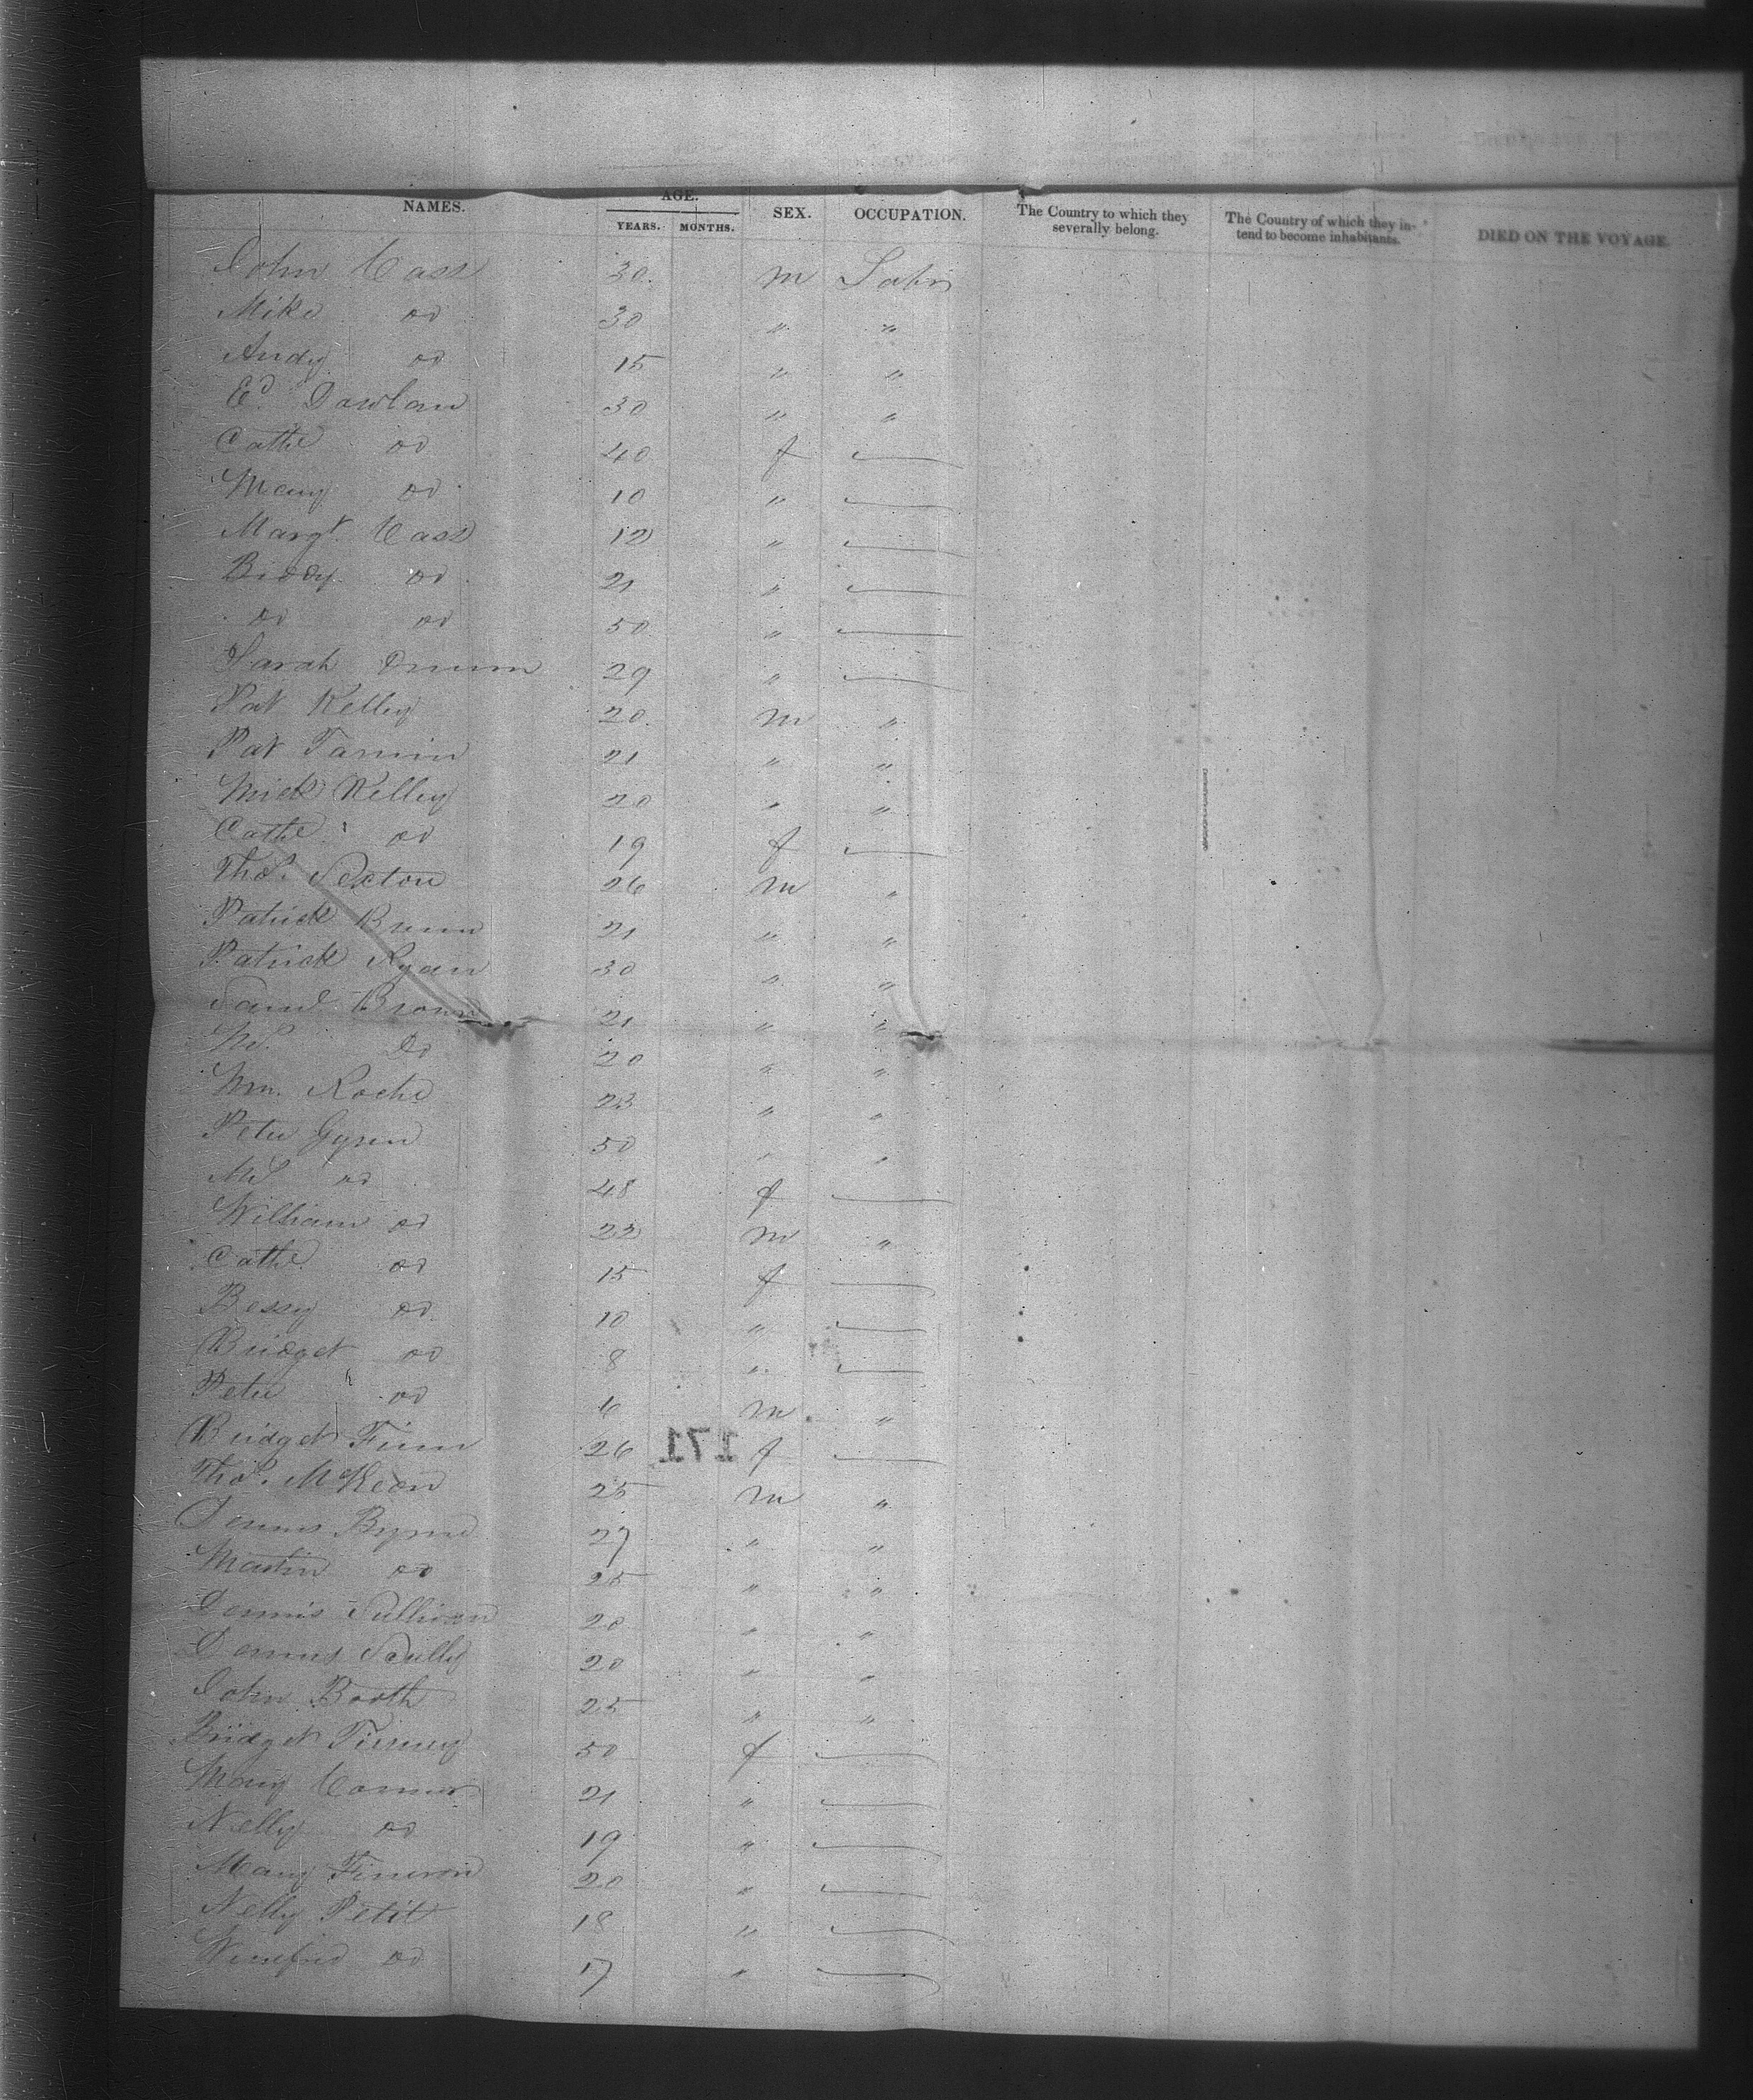 NAMES. AGE. YEARS. MONTHS. SEX. OCCUPATION. The Country to which they severally belong. The Country of which they intend to become inhabitants. DIED ON THE VOYAGE.
John Cass 30 m Labr
Mike do 30 " "
Andy do 15 " "
Ed. Dowlan 30 " "
Cathe do 40 f —
Mary do 10 " —
Margt. Cass 12 " —
Biddy do 21 " —
do do 50 " —
Sarah 29 " —
Pat Kelley 20 m "
Pat 21 " "
Mick Kelley 20 " "
Cathe do 19 f —
Thos. Sexton 26 m "
Patrick 21 " "
Patrick Ryan 30 " "
Saml Brown 21 " "
Do 20 " "
Wm. Roche 23 " "
Peter 50 " "
do 48 f —
William do 22 m "
Cathe do 15 f —
Bessy do 10 " —
Bridget do 8 " —
Peter do 6 m "
Bridget Finn 26 171 f —
Thos. McKeon 25 m "
Dennis Byrne 27 " "
Martin do 25 " "
Dennis Sullivan 20 " "
Dennis Scully 20 " "
John Booth 25 " "
Bridget Tierney 50 f —
Mary Connor 21 " —
Nelly do 19 " —
Mary 20 " —
Nelly Petit 18 " —
Winefrid do 17 " —